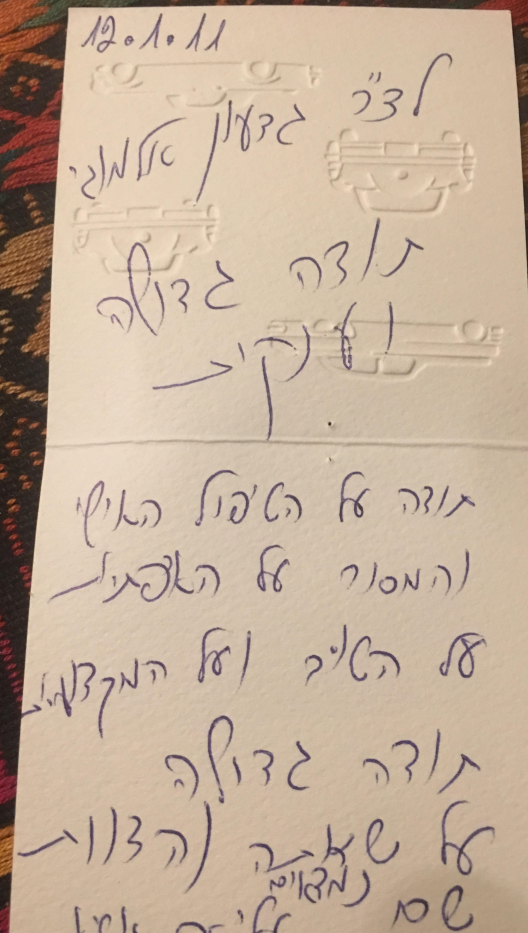 12.1.11
לד״ר גדעון אלמוגי
תודה גדולה
וענקית
תודה על הטיפול האישי
והמסור על האכפתיות
על הטוב ועל המקצועיות
תודה גדולה
על שאתה והצוות
נמצאים
שם